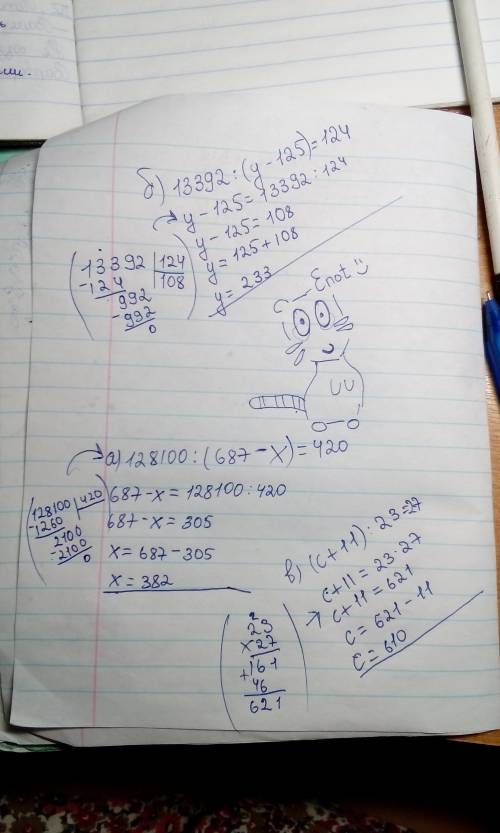 б) 13392 : (y - 125) = 124
y - 125 = 13392 : 124
y - 125 = 108
y = 125 + 108
y = 233
13392 | 124
- 124 | 108
992
- 992
0
Enot
а) 128100 : (687 - x) = 420
687 - x = 128100 : 420
687 - x = 305
x = 687 - 305
x = 382
128100 | 420
- 1260
2100
- 2100
0
в) (c + 11) : 23 = 27
c + 11 = 23 · 27
c + 11 = 621
c = 621 - 11
c = 610
2
23
x 27
+ 161
46
621